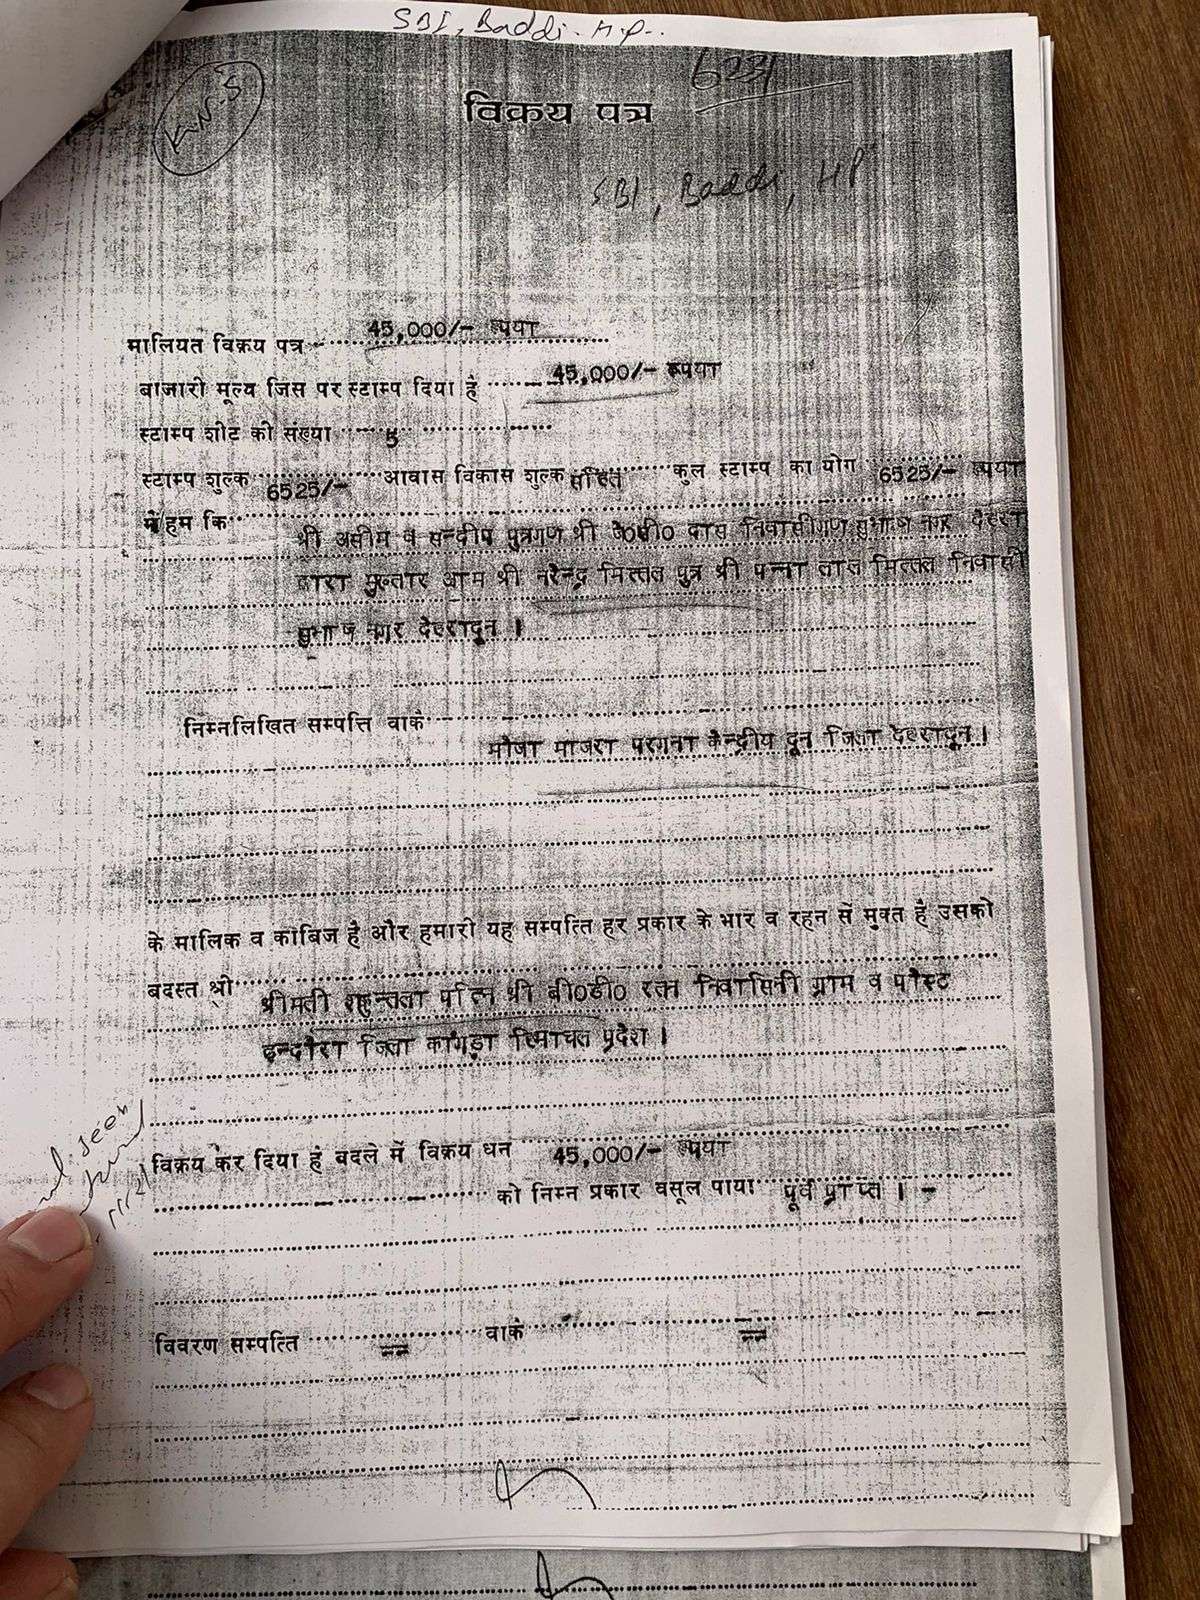 SBI, Baddi. H.P..
6231
विक्रय पत्र
SBI, Baddi, HP
मालियत विक्रय पत्र 45,000/- रूपया
बाजारी मूल्य जिस पर स्टाम्प दिया है 45,000/- रूपया
स्टाम्प शीट की संख्या 5
स्टाम्प शुल्क 6525/- आवास विकास शुल्क सहित कुल स्टाम्प का योग 6525/- रूपया
में हम कि
श्री असीम व सन्दीप पुत्रगण श्री जे0सी0 दास निवासीगण सुभाष नगर देहरा
द्वारा मुख्तार आम श्री नरेन्द्र मित्तल पुत्र श्री पन्ना लाल मित्तल निवासी
सुभाष नगर देहरादून ।
निम्नलिखित सम्पत्ति वाकं
मौजा माजरा परगना केन्द्रीय दून जिला देहरादून ।
के मालिक व काबिज है और हमारी यह सम्पत्ति हर प्रकार के भार व रहन सें मुक्त है उसको
बदस्त श्री
श्रीमती शकुन्तला पत्नि श्री बी0डी0 रत्तन निवासिनी ग्राम व पोस्ट
इन्दौरा जिला कांगड़ा हिमाचल प्रदेश ।
विक्रय कर दिया है बदले में विक्रय धन 45,000/- रूपया
को निम्न प्रकार वसूल पाया पूर्व प्राप्त । -
seen
विवरण सम्पत्ति वाकं